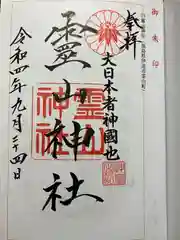 奉拝
大日本者神國也
靈山神社
霊山神社
令和四年九月二十四日
御朱印